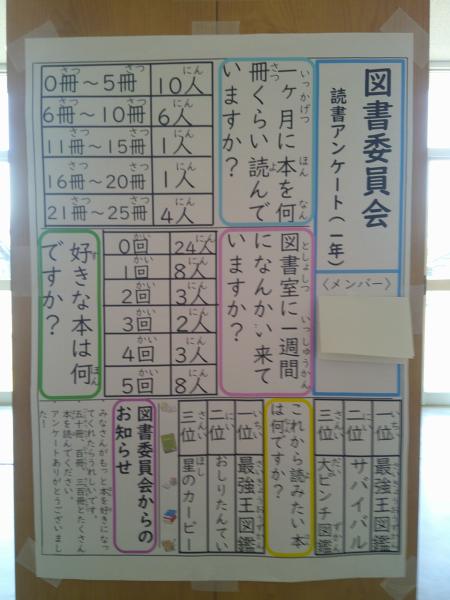 図書委員会
読書アンケート(一年)
〈メンバー〉
一ヶ月に本を何
冊くらい読んで
いますか?
0冊～5冊 10人
6冊～10冊 6人
11冊～15冊 1人
16冊～20冊 1人
21冊～25冊 4人
図書室に一週間
になんかい来て
いますか?
0回 24人
1回 8人
2回 3人
3回 2人
4回 3人
5回 8人
好きな本は何
ですか?
一位 最強王図鑑
二位 サバイバル
三位 大ピンチ図鑑
これから読みたい本
は何ですか?
一位 最強王図鑑
二位 おしりたんてい
三位 星のカービー
図書委員会からの
お知らせ
みなさんがもっと本を好きになっ
てくれたらうれしいです。
五十冊、百冊、三百冊とたくさん
本を読んでください。
アンケートありがとうございまし
た!